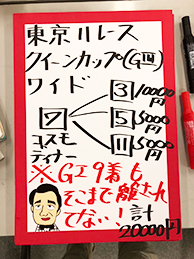 東京11レース
クイーンカップ(GⅢ)
ワイド
③ 10000円
⑦ ⑤ 5000円
コスモディナー ⑪ 5000円
※GⅠ9着も
そこまで離され
てない!計
20000円